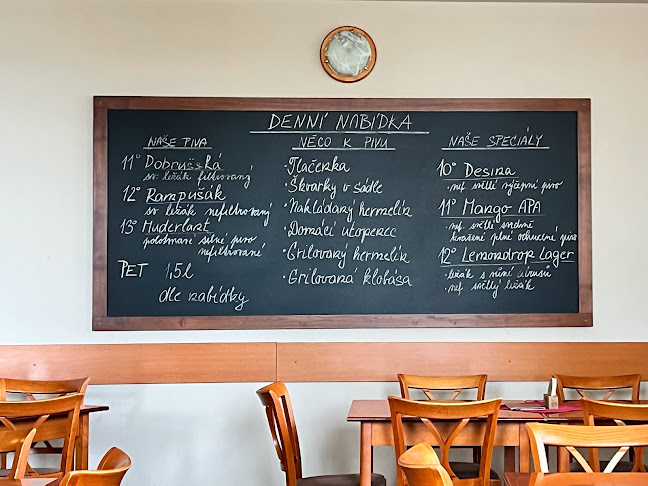 DENNÍ NABÍDKA
NAŠE PIVA
11° Dobrušská
sv. ležák filtrovaný
12° Rampušák
sv. ležák nefiltrovaný
13° Huderlart
polotmavé silné pivo
nefiltrované
PET 1,5l
dle nabídky
NĚCO K PIVU
·Tlačenka
·Škvarky v sádle
·Nakládaný hermelín
·Domácí utopenec
·Grilovaný hermelín
·Grilovaná klobása
NAŠE SPECIÁLY
10° Desina
·nef. světlé výčepní pivo
11° Mango APA
·nef. světlé svrchně
kvašené plné ochucené pivo
12° Lemondrop Lager
·ležák s vůní citrusů
·nef. světlý ležák